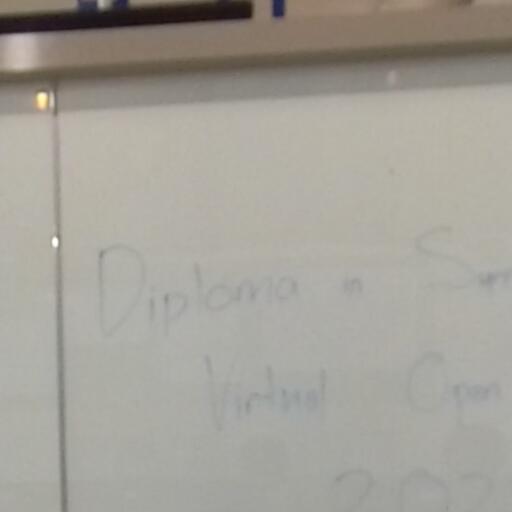 Diploma in
Virtual Open
202